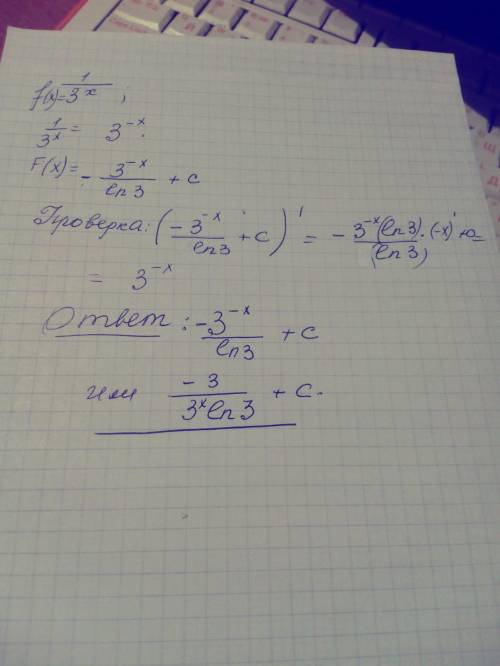 f(x)=1/3^x ;
1/3^x = 3^-x.
F(x)= - 3^-x/ln3 + c
Проверка: (-3^-x/ln3 + c)' = - 3^-x(ln3)/(ln3) · (-x)'
= 3^-x
Ответ: -3^-x/ln3 + c
или -3/3^x ln3 + c.